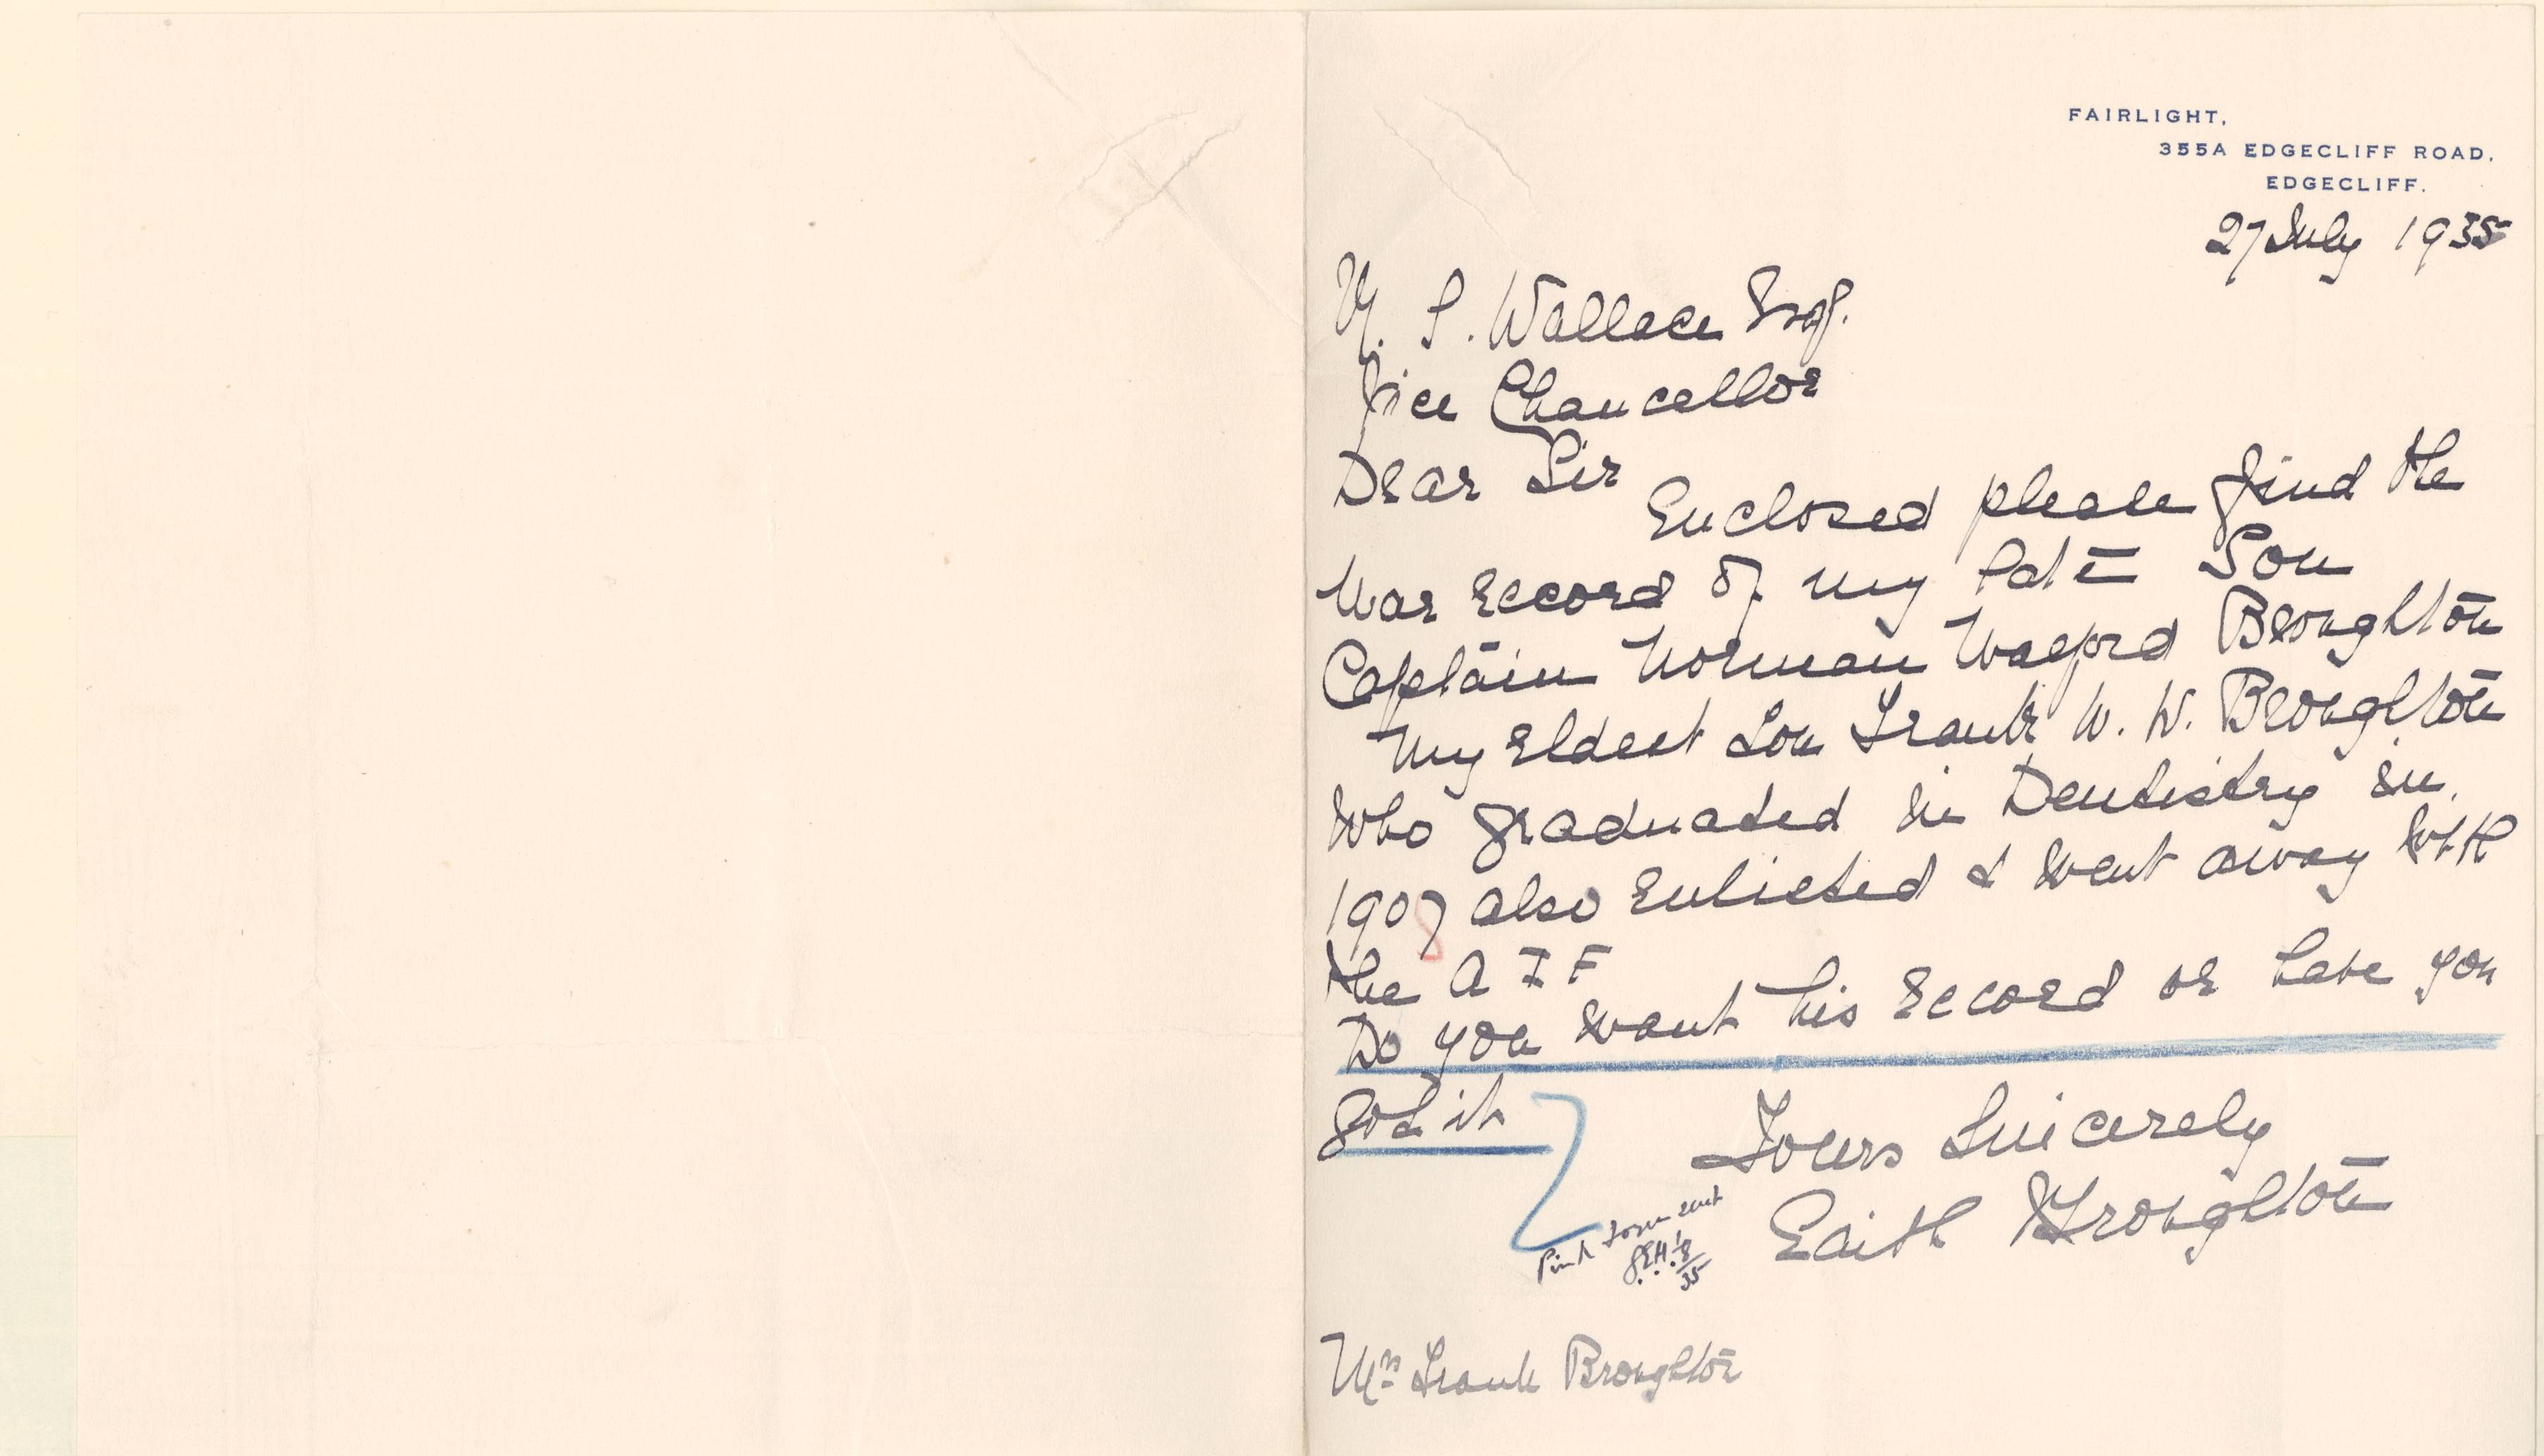 FAIRLIGHT,
355A EDGECLIFF ROAD,
EDGECLIFF.
27 July 1935
S. Wallace Esq.
Vice Chancellor
Dear Sir
Enclosed please find the
War record of my late Son
Captain Norman Broughton
My Eldest Son Frank W. W. Broughton
Who graduated in Dentistry in
1907 also Enlisted & went away with
8
the A I F
Do you want his record or have you
got it
Yours Sincerely
Edith Broughton
Pink form sent
1/8/35
Mrs Frank Broughton